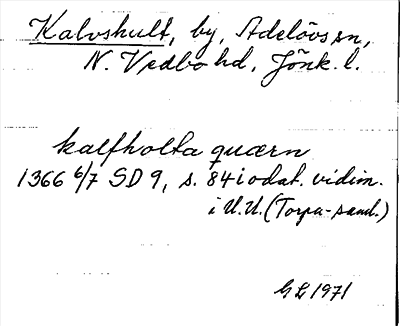 Kalvshult, by, Adelövs sn,
N. Vedbo hd, Jönk. l.
kalfholta quærn
1366 6/7 SD 9, s. 84 i odat. vidim.
i U.U. (Torpa-saml.)
GL 1971